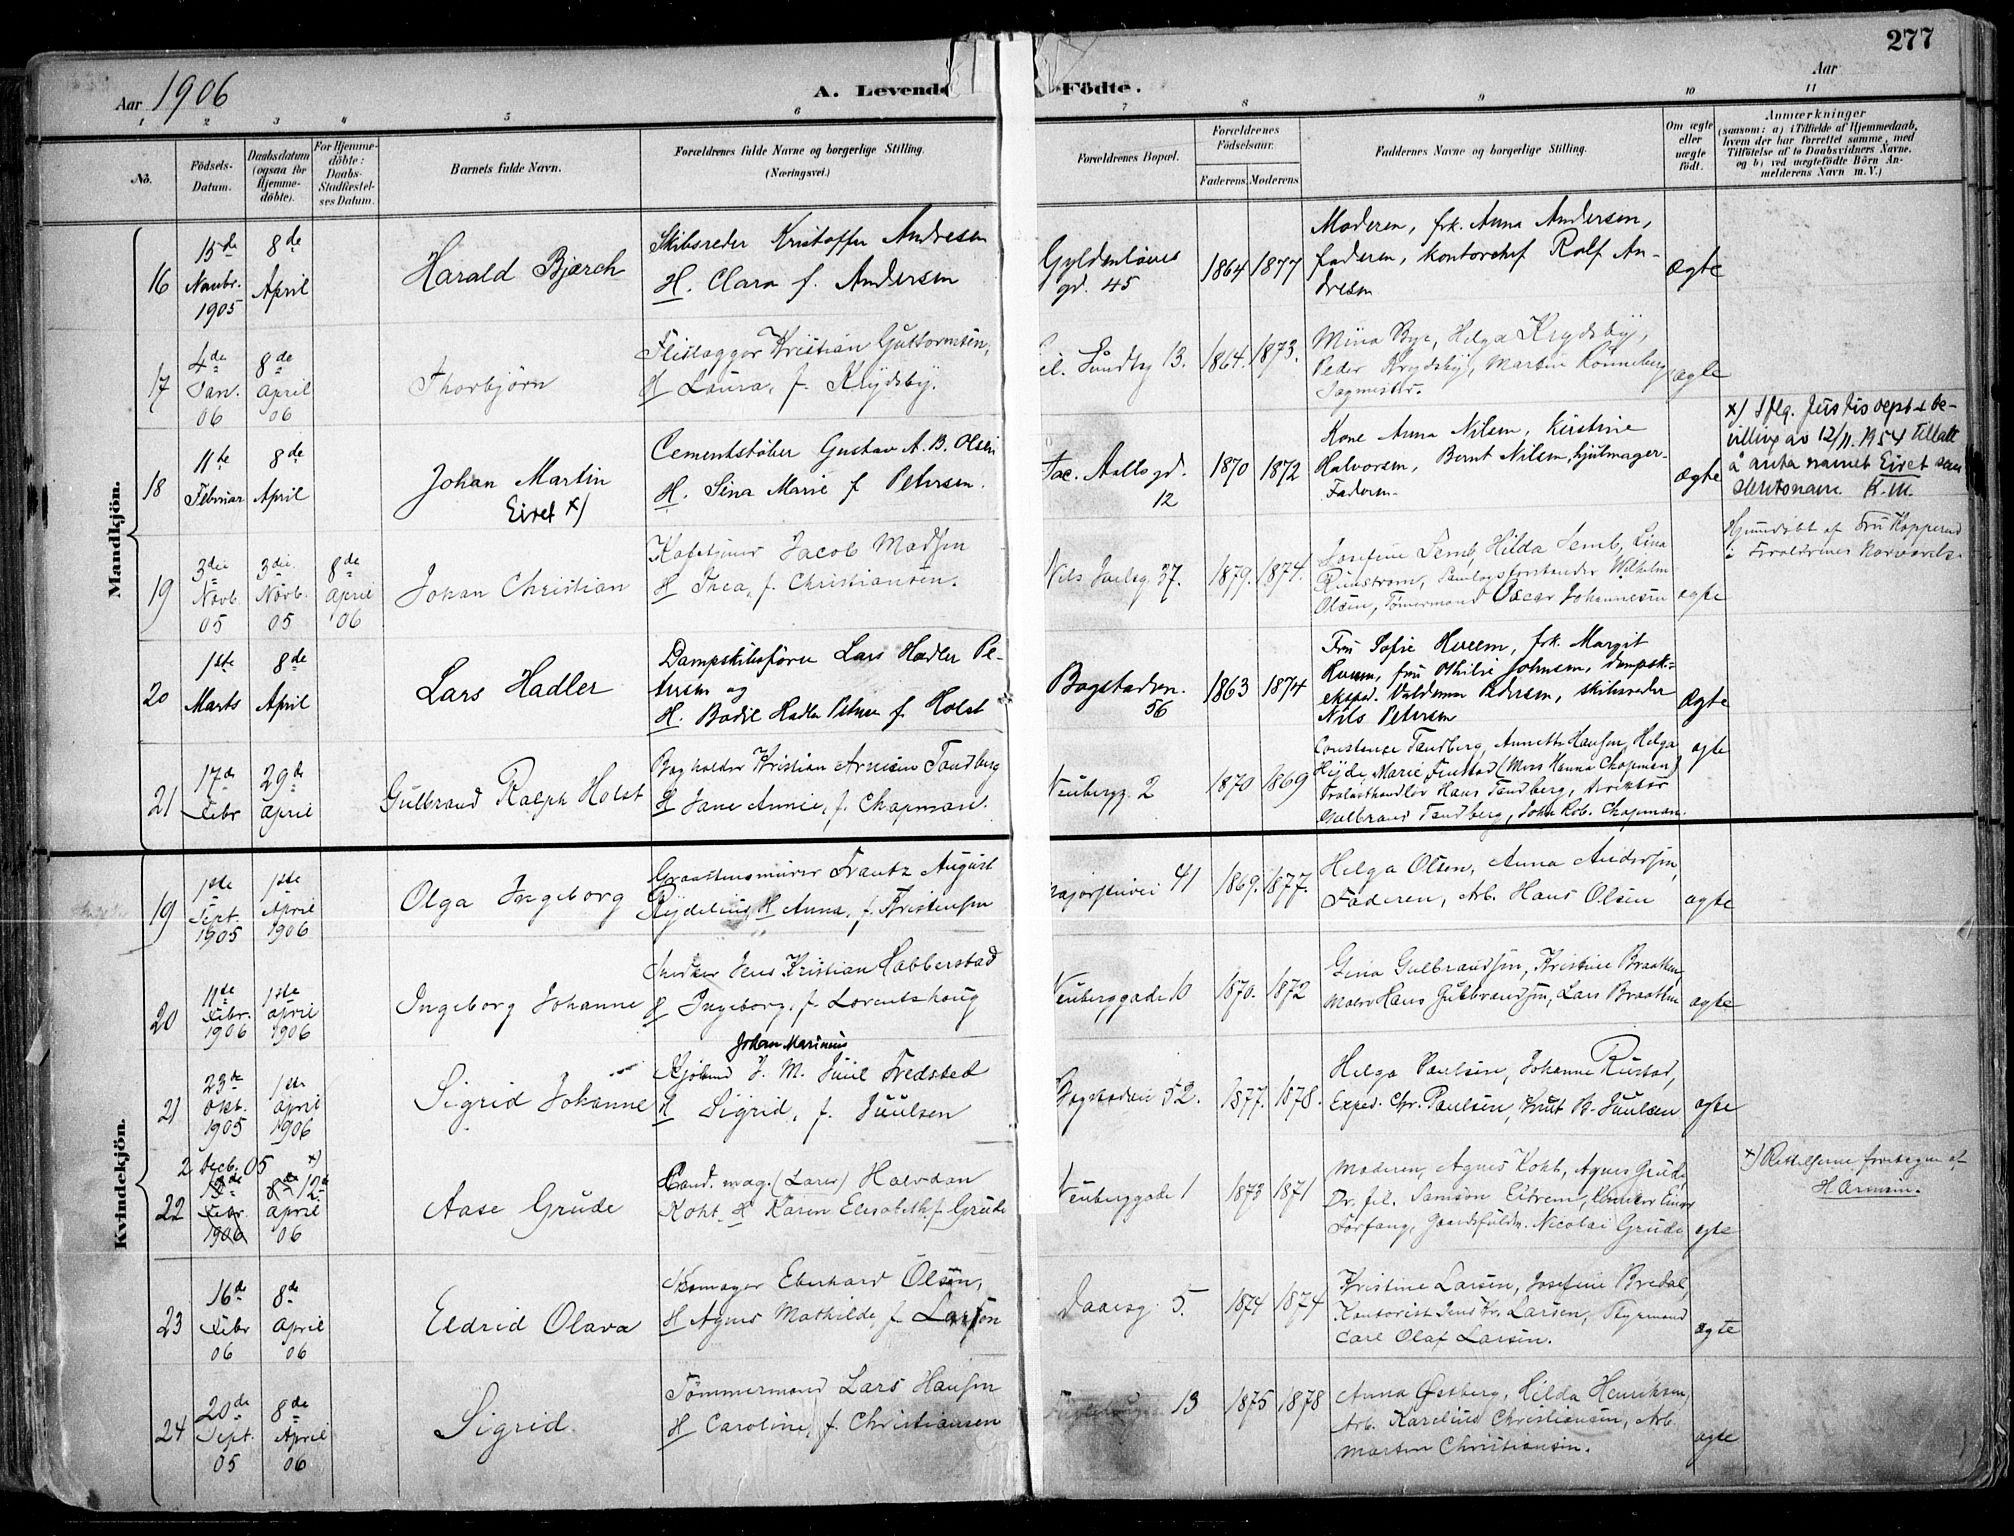 277
Aar 1906
A. Levende Födte.
Aar
1 2 3 4 5 6 7 8 9 10 11
No.
Födsels-Datum.
Daabsdatum (ogsaa for Hjemme-döbte).
For Hjemme-döbte: Daabs-Stadfæstel-ses Datum.
Barnets fulde Navn.
Forældrenes fulde Navne og borgerlige Stilling.
(Næringsvei.)
Forældrenes Bopæl.
Forældrenes Födselsaar.
Faderens Moderens
Faddernes Navne og borgerlige Stilling.
Om ægte eller uægte födt.
Anmærkninger
(saasom: a) i Tilfælde af Hjemmedaab,
hvem der har forrettet samme, med
Tilföielse af to Daabsvidners Navne,
og b) ved uægtefödte Börn An-
melderens Navn m. V.)
Mandkjön.
16
15de Novbr. 1905
8de April
Harald Bjærch
Skibsreder Kristoffer Andresen
H. Clara f. Andersen
Gyldenløves gd. 45
1864 1877
Moderen, frk. Anna Andersen,
faderen, kontorchef Rolf An-
dresen
ægte
17
4de Jan. 06
8de April 06
Thorbjørn
Flislægger Kristian Guttormsen,
H Laura, f. Krydsby.
Eil. Sundtsg 13.
1864. 1873.
Mina Bye, Helga Krydsby,
Peder Krydsby, Martin Rönneberg
Sagmester.
ægte
18
11te Februar
8de April
Johan Martin
Eiret x)
Cementstøber Gustav A. B. Olsen
H. Sina Marie f Petersen.
Jac. Aallsgd. 12
1870 1872
Kone Anna Nilsen, Kirstine
Halvorsen, Bernt Nilsen, hjulmager-
Faderen.
ægte
x) Iflg. Justisdepts be-
villing av 12/11. 1954 tillatt
å anta navnet Eiret som
slektsnavn. K.M.
19
3die Novb. 05
3die Novb. 05
8de April '06
Johan Christian
Jacob Madsen
H Thea, f. Christiansen.
Nils Juelsg 37.
1879. 1874.
Josefine Semb, Hilda Semb, Lina
Wilhelm
Olsen, Tömermand Oscar Johannesen
ægte
Hjemdöbt af Fru Kopperud
i Forældrenes Nærværelse.
20
1ste Marts
8de April
Lars Hadler
Dampskibsfører Lars Hadler Pe-
tersen og
H. Bodil Hadler Petersen f. Holst
Bogstadvn. 56
1863 1874
Fru Sofie Hveem, frk. Margit
Hveem, fru Othilie Johnsen, dampsk.-
eksped. Valdemar Pedersen, skibsreder
Nils Petersen
ægte
21
17de Febr
29de April
Gulbrand Ralph Holst
Bogholder Kristian Arnesen Tandberg
H Jane Annie, f. Chapman.
Neubergg. 2
1870 1869
Constance Tandberg, Annette Hansen, Helga
Heyde, Marie Fenstad (Mers Hanna Chapman)
Trælasthandler Hans Tandberg, Direktør
Gulbrand Tandberg, John Rob. Chapman.
ægte
Kvindekjön.
19
1ste Sept. 1905
1ste April 1906
Olga Ingeborg
Graastensmurer Frantz August
Rydeling, H Anna, f. Kristensen
Majorstuvei 41
1869. 1877.
Helga Olsen, Anna Andersen,
Faderen, Arb. Hans Olsen
ægte
20
11te Febr. 1906
1ste April 1906
Ingeborg Johanne
Snedker Jens Kristian Habberstad
H Ingeborg, f. Lorentshoug
Neuberggade 10
1870. 1872
Gina Gulbrandsen, Kristine Braathen
Maler Hans Gulbrandsen, Lars Braathen
ægte
21
23de Okt. 1905
1ste April 1906
Sigrid Johanne
Johan Marinius
Kjøbmd J. M. Juul Fredsted
H Sigrid, f. Juulsen
Bogstadvei 52.
1877. 1878.
Helga Paulsen, Johanne Rustad,
Exped. Chr. Paulsen, Knut B. Juulsen
ægte
22
2 Decb. 05 x)
Febr. 1906
8de 12te April 06
Aase Grude
Cand. mag. (Lærer) Halvdan
Koht, H Karen Elisabeth f. Grude
Neuberggade 1
1873 1871
Moderen, Agnes Koht, Agnes Grude,
Dr. fil. Samson Eitrem,
Gaardsfuldm. Nicolai Grude
ægte
x) Rettelserne foretagne af
H. Arnesen.
23
16de Febr 06
8de April 06
Eldrid Olava
Skomager Eberhard Olsen,
H Agnes Mathilde f Larsen
Daasg. 5.
1874 1874
Kristine Larsen, Josefine Bredal,
Kontorist Jens Kr. Larsen, Styrmand
Carl Olaf Larsen.
ægte
24
20de Sept. 05
8de April 06
Sigrid
Tømmermand Lars Hansen
H Caroline, f. Christiansen
13
1875 1878
Anna Østberg, Hilda Henriksen,
Arb. Karelius Christiansen, Arb.
Marten Christiansen.
ægte